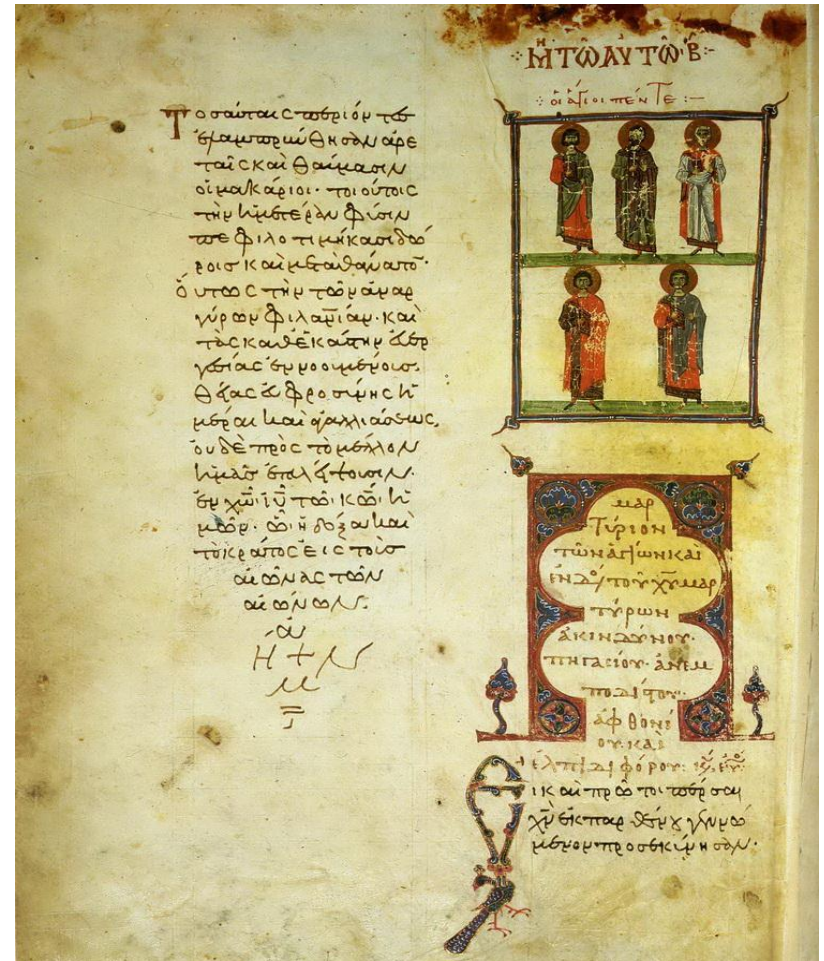 Τοσαύταις περιόντες
ἐλαμπρύνθησαν ἀρε
ταῖς καὶ θαύμασιν
οἱ μακάριοι· τοιούτοις
τὴν ἡμετέραν φύσιν
πεφιλοτιμήκασι δώ
ροις καὶ μετὰ θάνατον·
Οὕτως τὴν τῶν ἀναρ
γύρων φιλανίαν· καὶ
τὰς καθ' ἑκάστην εὐερ
γεσίας ἐννοουμένοις
εὐφροσύνης ἡ
μέρα καὶ ἀγαλλιάσεως,
οὐδὲ πρὸς τὸ μέλλον
ἡμᾶς
ἐν χῶ ἰῦ τῶ κῶ ἡ
μῶν· ὧ ἡ δόξα καὶ
τὸ κράτος εἰς τοὺς
αἰῶνας τῶν
αἰώνων·
ἀ
ΜΗ ΤΩ ΑΥΤΩ Β
οἱ ἅγιοι πέντε
μαρ
τύριον
τῶν ἁγίων καὶ
ἐνδο/ τοῦ χῦ μαρ
τύρων
ἀκινδύνου·
πηγασίου· ἀνεμ
ποδίστου·
ἀφθονί
ου καὶ
ἐλπιδιφόρου·
Εἰ καὶ πρῶτοι πέρσαι
χν ἐκ παρθένου γεννώ
μενον προσεκύνησαν·